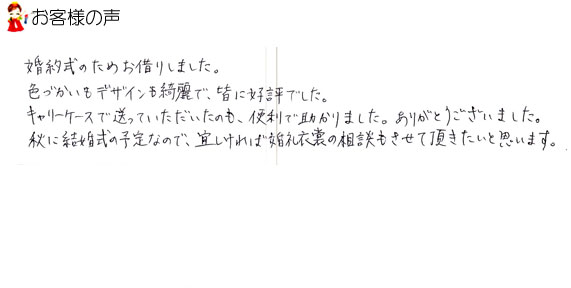 お客様の声
婚約式のためお借りしました。
色づかいもデザインも綺麗で、皆に好評でした。
キャリーケースで送っていただいたのも、便利で助かりました。ありがとうございました。
秋に結婚式の予定なので、宜しければ婚礼衣裳の相談もさせて頂きたいと思います。